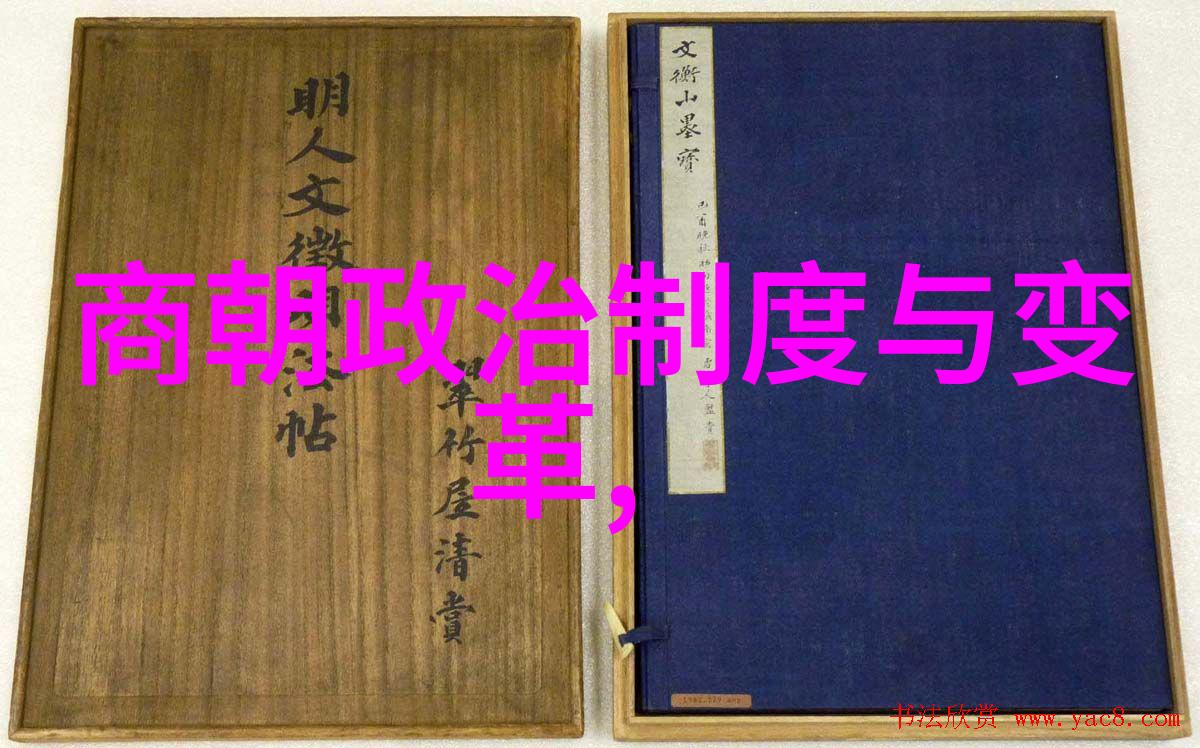 明人文徵明法帖
翠竹屋清賞
文衡山墨寶
商朝政治制度与变
革,
书法欣赏 www.yac8.com